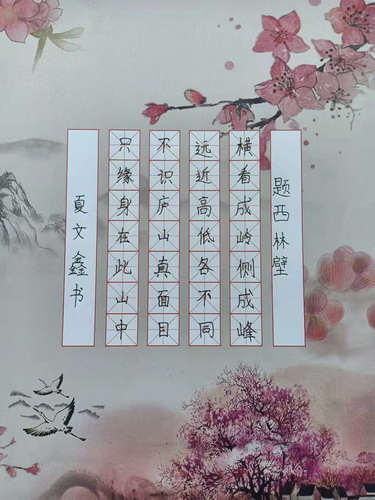 题西林壁
横看成岭侧成峰
远近高低各不同
不识庐山真面目
只缘身在此山中
夏文鑫书